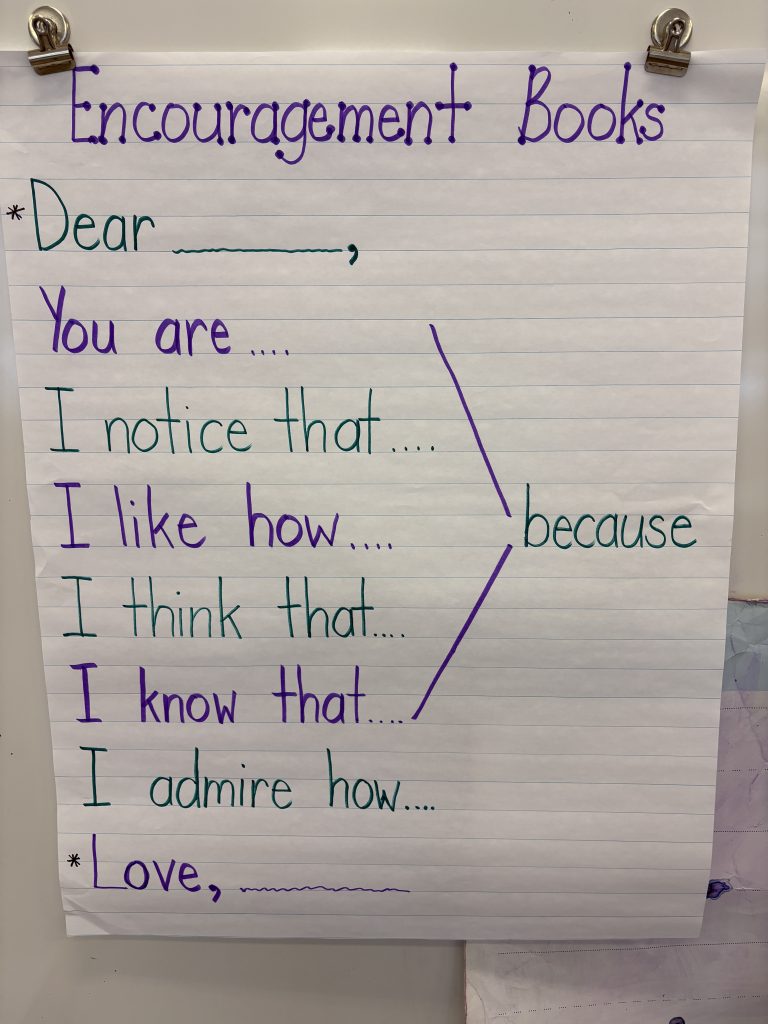 Encouragement Books
*Dear ________,
You are ....
I notice that ....
I like how ....
because
I think that ....
I know that ....
I admire how ....
*Love, ________